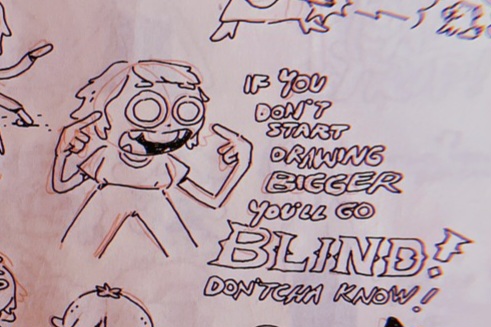 IF YOU
DON'T
START
DRAWING
BIGGER
YOU'LL GO
BLIND!
DON'TCHA KNOW!